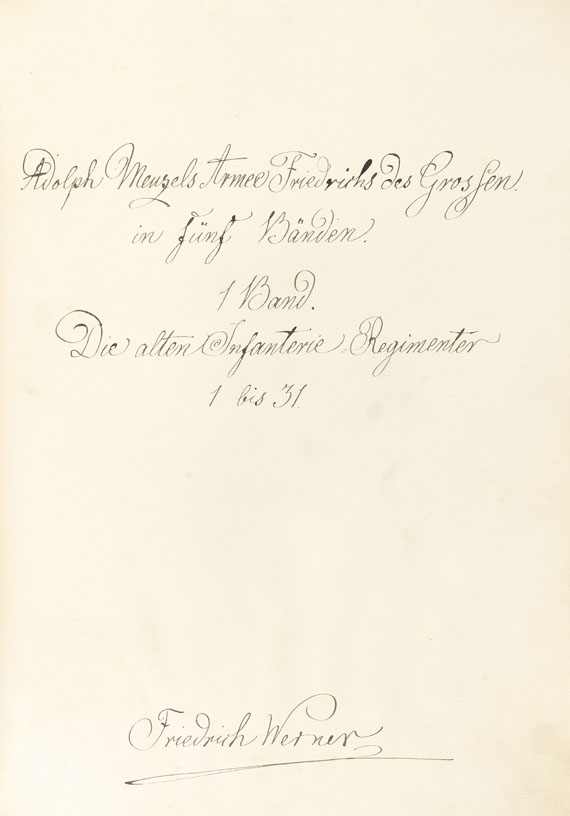 Adolph Menzels Armee Friedrichs des Grossen.
in fünf Bänden.
1 Band.
Die alten Infanterie-Regimenter
1 bis 31
Friedrich Werner